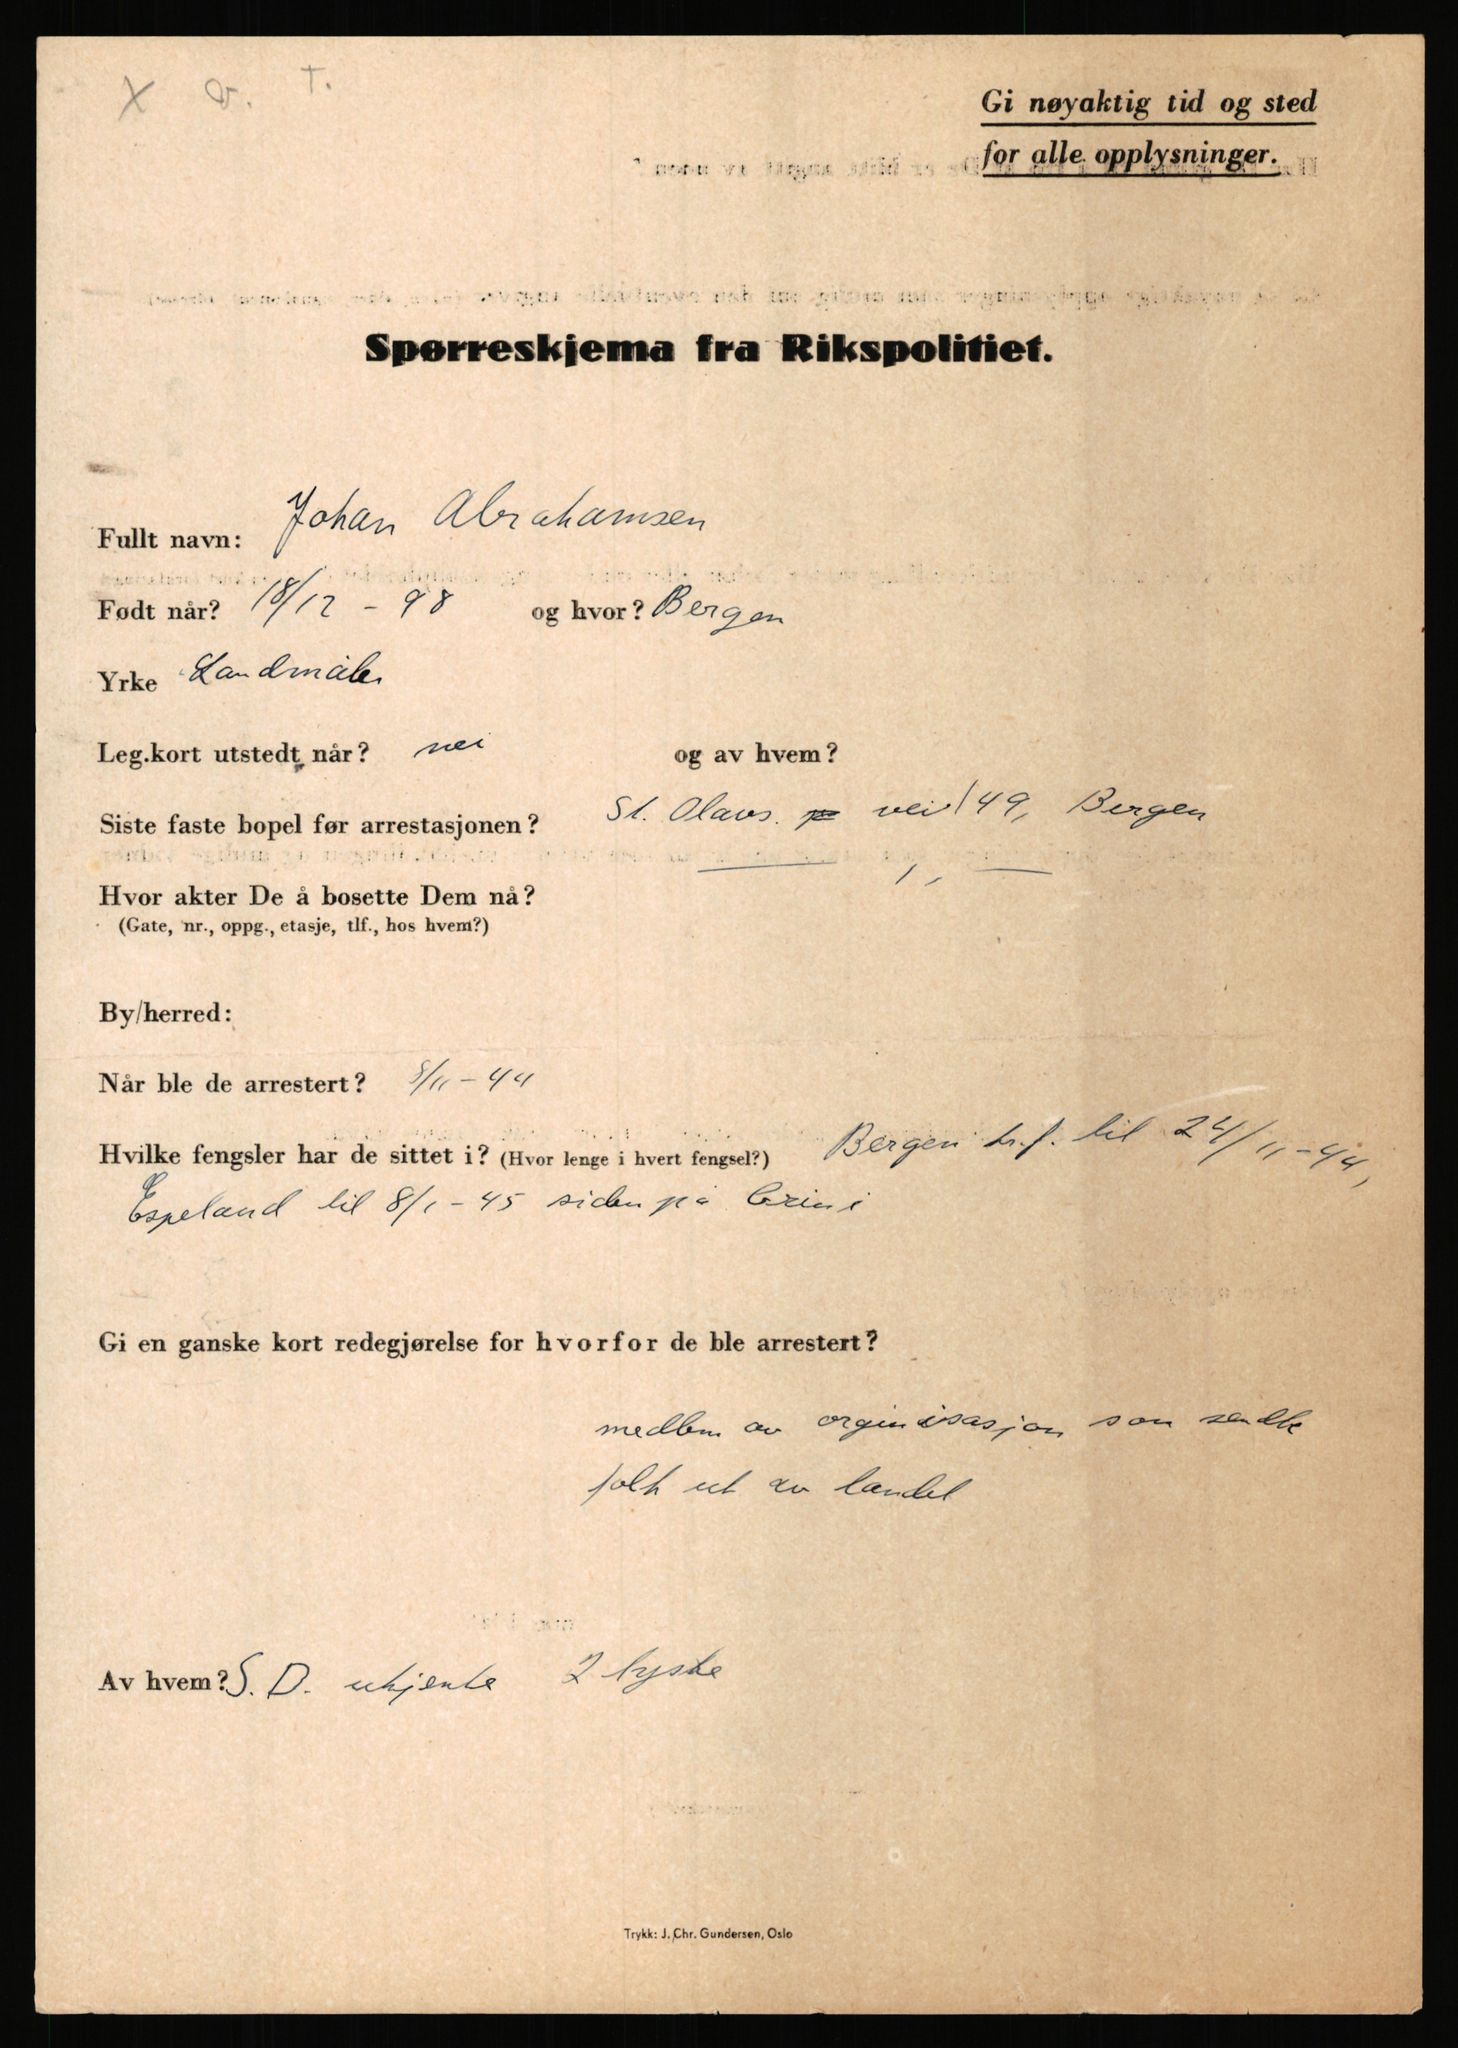 X v. T.
Gi nøyaktig tid og sted
for alle opplysninger.
Spørreskjema fra Rikspolitiet.
Fullt navn: Johan Abrahamsen
Født når? 18/12 - 98 og hvor? Bergen
Yrke Landmåler
Leg.kort utstedt når? nei og av hvem?
Siste faste bopel før arrestasjonen? St. Olavs. vei 49, Bergen
Hvor akter De å bosette Dem nå? — „ —
(Gate, nr., oppg., etasje, tlf., hos hvem?)
By/herred:
Når ble de arrestert? 8/11 - 44
Hvilke fengsler har de sittet i? (Hvor lenge i hvert fengsel?) Bergen kr.f. til 24/11-44,
Espeland til 8/1-45 siden på Grini
Gi en ganske kort redegjørelse for hvorfor de ble arrestert?
medlem av orginisasjon som sendte
folk ut av landet
Av hvem? S. D. ukjente 2 tyske
Trykk: J. Chr. Gundersen, Oslo